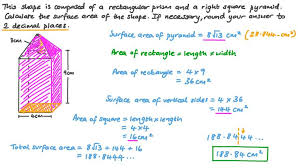 This shape is composed of a rectangular prism and a right square pyramid.
Calculate the surface area of the shape. If necessary, round your answer to
2 decimal places.
Surface area of pyramid = 8√13 cm² (28.844 cm²)
Area of rectangle = length × width
Area of rectangle = 4 × 9
= 36cm²
Surface area of vertical sides = 4 × 36
= 144 cm²
Area of square = length × length
= 4×4
= 16cm²
Total surface area = 8√13 + 144 + 16
= 188.8444...
188.84|44...
188.84 cm²
3cm
9cm
4cm